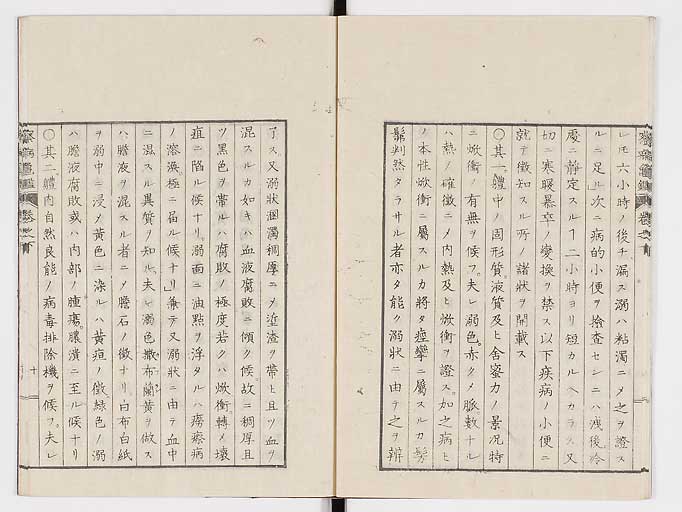 レモ六小時ノ後チ漏ス溺ハ粘濁ニメ之ヲ證ス
ルニ足ル」次ニ病的小便ヲ撿査センニハ洩後冷
處ニ静定スルヿ二小時ヨリ短カルヘカラス又
切ニ寒暖暴卒ノ變換ヲ禁ス以下疾病ノ小便ニ
就テ徴知スル所ノ諸状ヲ開載ス
〇其一。軆中ノ固形質液質及ヒ舎蜜力ノ景况特
ニ焮衝ノ有無ヲ候フ。夫レ溺色。赤クメ脈數ナル
ハ熱ノ確徴ニメ内熱及ヒ焮衝ヲ證ス。加之病ヒ
ノ本性焮衝ニ屬スルカ將タ痙攣ニ屬スルカ髣
髴判然タラサル者亦タ能ク溺状ニ由テ之ヲ辨
了ス又溺状溷濁稠厚ニメ渣ヲ帶ヒ且ツ血ヲ
混スルカ如キハ血液腐敗ニ傾ク候。故ニ稠厚且
ツ黒色ヲ帶ルハ腐敗ノ極度若クハ焮衝。轉メ壊
疽ニ陷ル候ナリ。溺面ニ油點ヲ浮タルハ癆瘵病
ノ溶渙極ニ届ル候ナリ」兼テ又溺状ニ由テ血中
ニ混スル異質ヲ知ル夫レ濁色撒布蘭黄ヲ做ス
ハ膽液ヲ混スル者ニメ膽石ノ徴ナリ。白布白紙
ヲ溺中ニ浸メ黄色ニ染ルハ黄疸ノ徴緑色ノ溺
ハ膽液腐敗或ハ内部ノ腫瘍。膿潰ニ至ル候ナリ
〇其二。軆内自然良能ノ病毒排除機ヲ候フ。夫レ
十